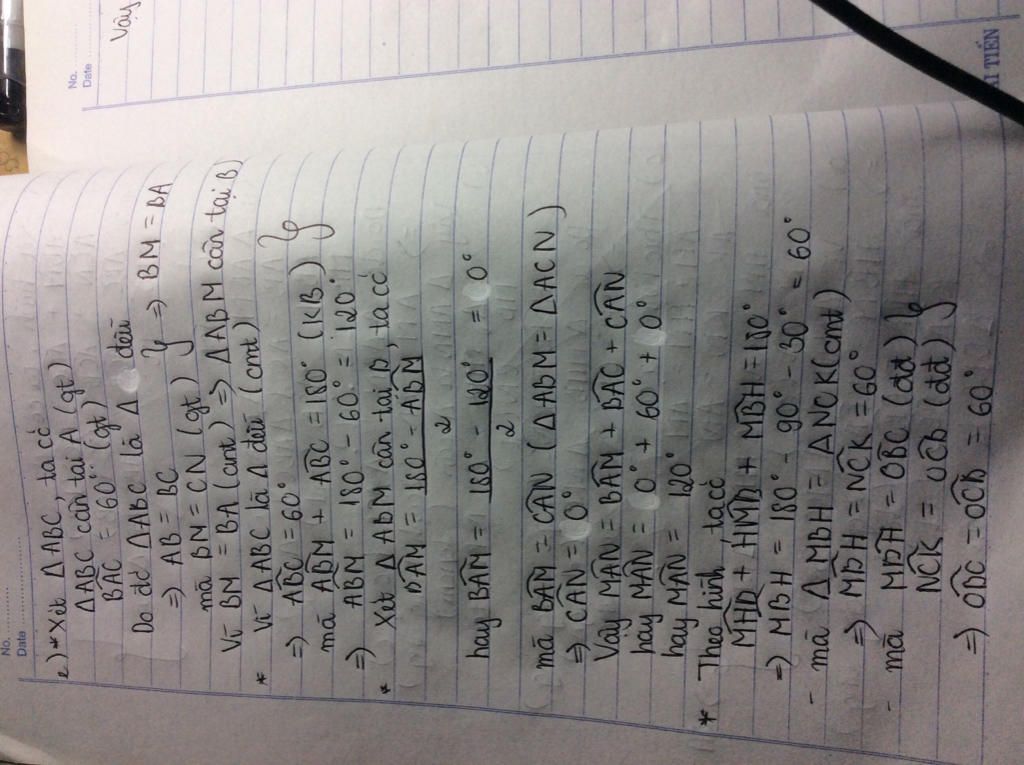 No.
Date
e) * Xét ΔABC, ta có
ΔABC cân tại A (gt)
BAC = 60° (gt)
Do đó ΔABC là Δ đều
=> AB = BC
mà BM = CN (gt) } => BM = BA
Vì BM = BA (cmt) => ΔABM cân tại B)
* Vì ΔABC là Δ đều (cmt)
=> ABC = 60°
mà ABM + ABC = 180° (KB) }
=> ABM = 180° - 60° = 120°
* Xét ΔABM cân tại B, ta có
BAM = 180° - ABM
2
hay BAM = 180° - 120° = 0°
2
mà BAM = CAN (ΔABM = ΔACN)
=> CAN = 0°
Vậy MAN = BAM + BAC + CAN
hay MAN = 0° + 60° + 0°
hay MAN = 120°
* Theo hình, ta có
MHB + HMB + MBH = 180°
=> MBH = 180° - 90° - 30° = 60°
- mà ΔMBH = ΔNCK (cmt)
=> MBH = NCK = 60°
- mà MBH = OBC (đđ)
NCK = OCB (đđ) }
=> OBC = OCB = 60°
No.
Date
Vậy
ẢI TIẾN